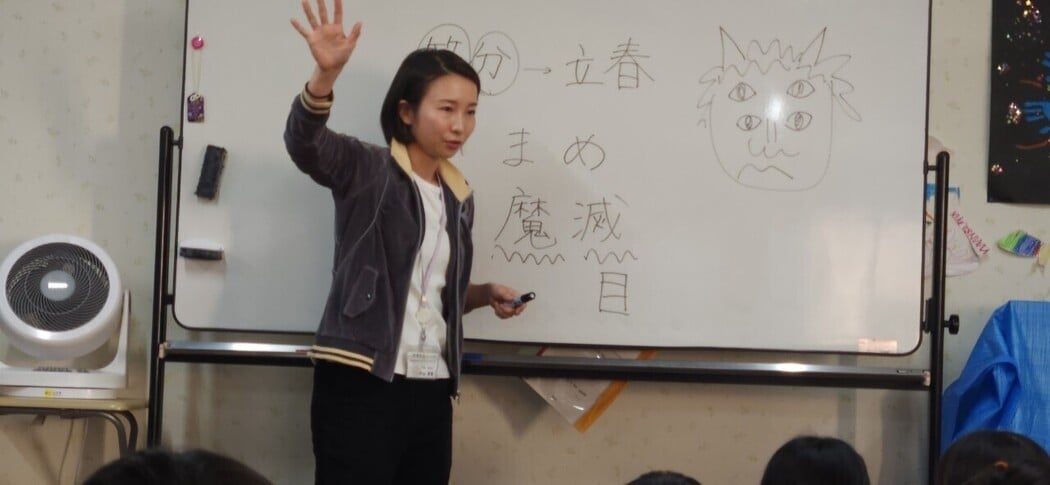 節分→立春
まめ
魔滅
目